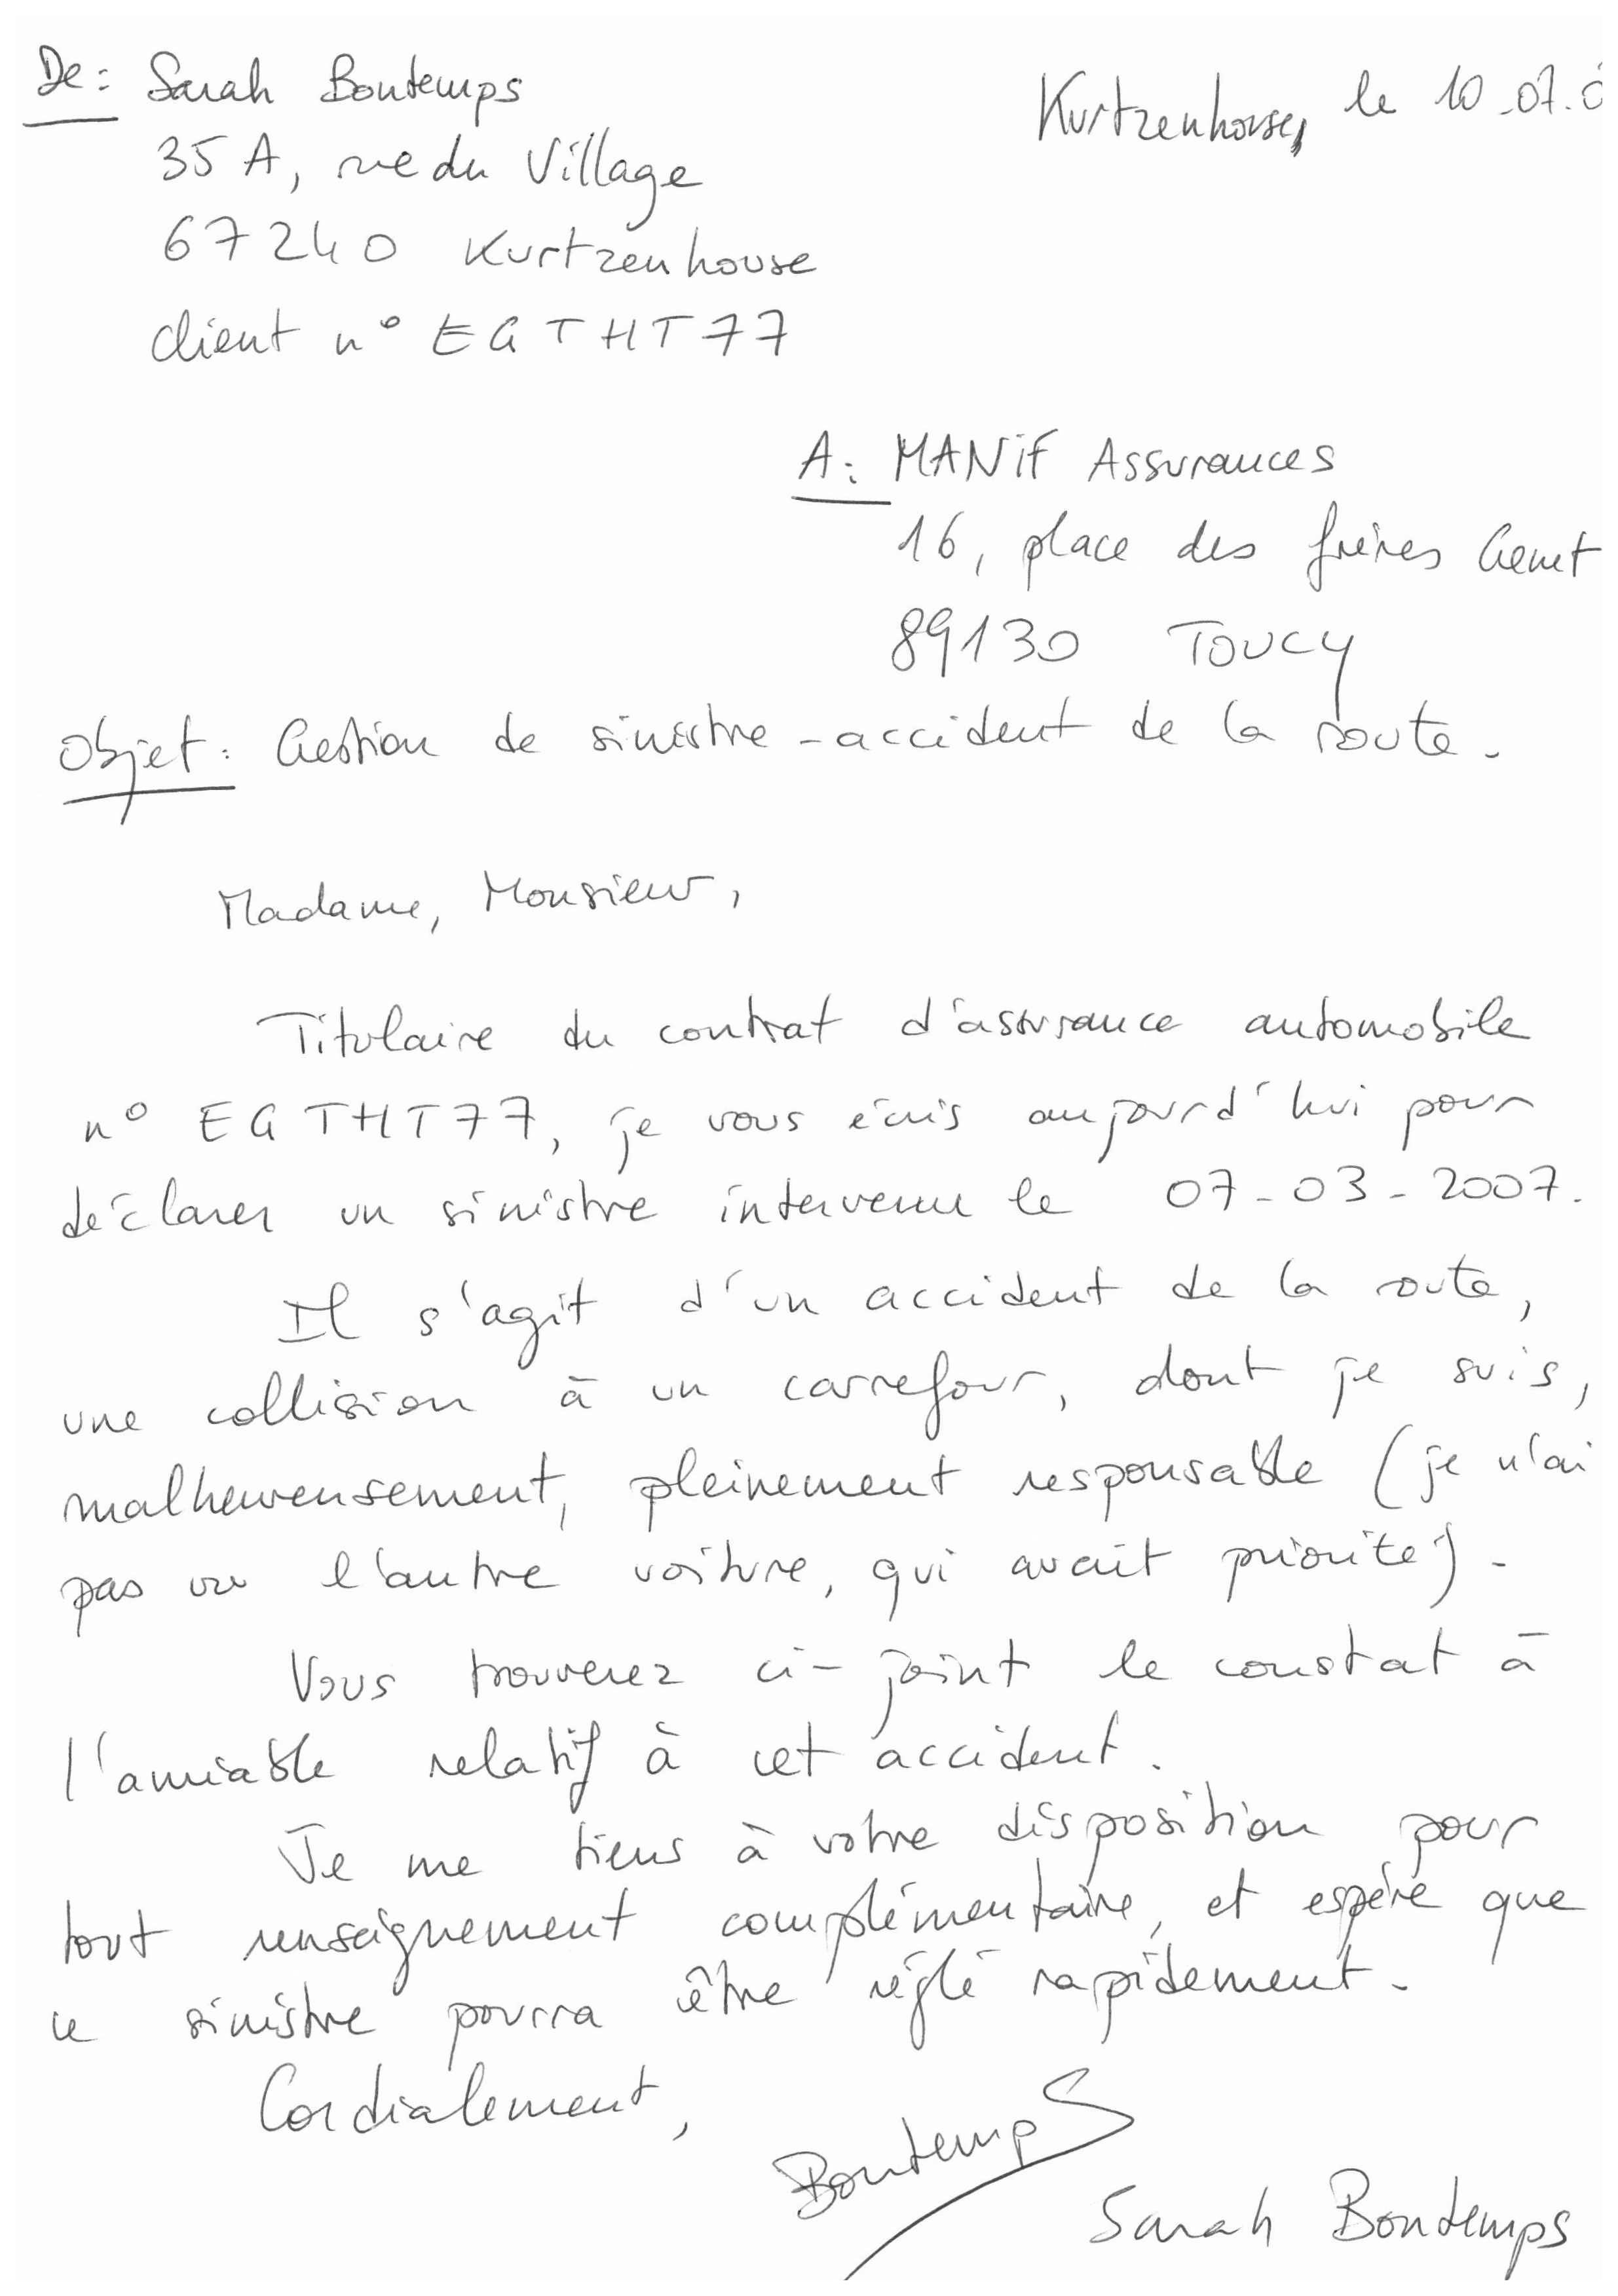 De: Sarah Bontemps
Kurtzenhouse, le 10.07.0
35 A, rue du Village
67240 Kurtzenhouse
client n° EGTHT77
A: MANiF Assurances
16, place des frères Genet
89130 TOUCY
Objet: Gestion de sinistre - accident de la route.
Madame, Monsieur,
Titulaire du contrat d'assurance automobile
n° EGTHT77, je vous écris aujourd'hui pour
déclarer un sinistre intervenu le 07-03-2007.
Il s'agit d'un accident de la route,
une collision à un carrefour, dont je suis,
malheureusement, pleinement responsable (je n'ai
pas vu l'autre voiture, qui avait priorité).
Vous trouverez ci-joint le constat à
l'amiable relatif à cet accident.
Je me tiens à votre disposition pour
tout renseignement complémentaire, et espère que
ce sinistre pourra être réglé rapidement.
Cordialement,
Bontemps
Sarah Bontemps